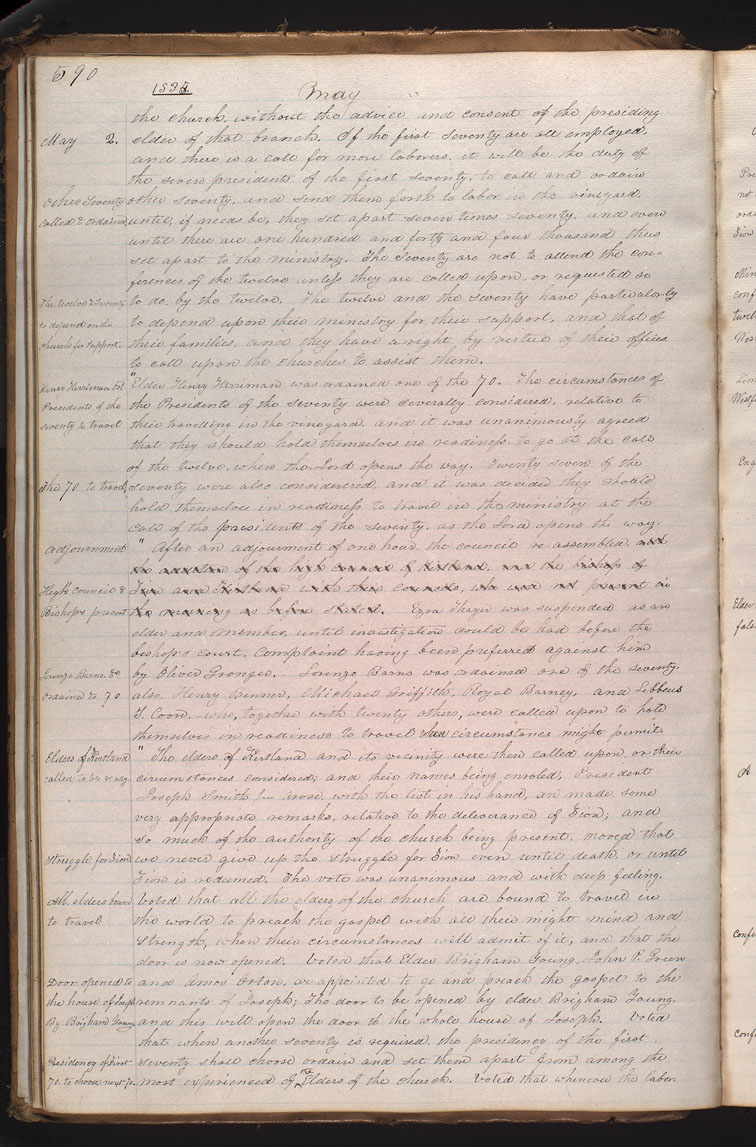 590
1835 May
the church, without the advice and consent of the presiding
May 2. elder of that branch. If the first seventy are all employed,
and there is a call for more laborers, it will be the duty of
the seven presidents of the first seventy, to call and ordain
Other Seventy other seventy, and send them forth to labor in the vineyard,
called & ordained until, if needs be, they set apart seven times seventy, and even
until there are one hundred and forty and four thousand thus
set apart to the ministry. The Seventy are not to attend the con=
ferences of the twelve unless they are called upon, or requested so
The twelve & Seventy to do, by the twelve. The twelve and the seventy have particularly
to depend on the to depend upon their ministry for their support, and that of
church for support. their families, and they have a right, by virtue of their offices
to call upon the churches to assist them.
Henry Herriman &c "Elder Henry Herriman was ordained one of the 70. The circumstances of
Presidents of the the Presidents of the seventy were severally considered, relative to
seventy to travel their travelling in the vineyard, and it was unanimously agreed
that they should hold themselves in readiness to go at the call
of the twelve, where the Lord opens the way. Twenty seven of the
The 70 to travel seventy were also considererd, and it was decided they should
hold themselves in readiness to travel in the ministry at the
call of the presidents of the seventy, as the Lord opens the way.
adjournment " After an adjourment of one hour, the council re-assembled, and
the of the high council of Kirtland, and the bishops of
High Council & Zion and Kirtland with their councils, who were not present in
Bishops present the morning as before stated. Ezra Thayer was suspended as an
elder and member, until investigation could be had before the
bishop's court, complaint having been preferred against him
Lorenzo Barns. &c by Oliver Granger. Lorenzo Barns was ordained one of the seventy.
Ordained to 70 also Henry Benner, Michael Griffith, Royal Barney, and Libbeus
T. Coon. who, together with twenty others, were called upon to hold
themselves in readiness to travel circumstances might permit.
Elders of Kirtland " The elders of Kirtland and its vicinity were then called upon, or their
called to be ready circumstances considered; and their names being enroled, President
Joseph Smith jun arose, with the list in his hand, an made some
very appropriate remarks, relative to the deliverance of Zion; and
so much of the authority of the church being present, moved that
Struggle for Zion we never give up the struggle for Zion even until death, or until
Zion is redeemed. The vote was unanimous and with deep feeling.
All elders bound Voted that all the elders of the church are bound to travel in
to travel the world to preach the gospel with all their might mind and
strength, when their circumstances will admit of it, and that the
door is now opened. Voted that Elder Brigham Young, John P. Green
Door opened to and Amos Orton, are appointed to go and preach the gospel to the
the house of Joseph remnants of Joseph; The door to be opened by elder Brigham Young,
By Brigham Young and this will open the door to the whole house of Joseph. Voted
that when another seventy is required the presidency of the first
Presidency of first seventy shall choose ordain and set them apart from among the
70. to choose next 70. most experienced of the Elders of the church. Voted that whenever the labor